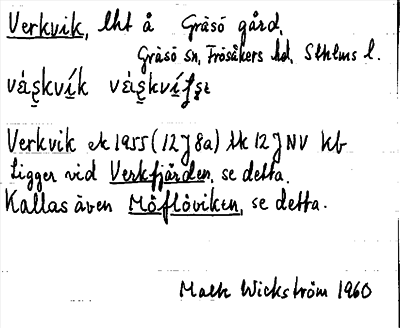 Verkvik, lht å Gräsö gård,
Gräsö sn, Frösåkers hd, Sthlms l.
Verkvik ek 1955 (12J 8a) lk 12J NV kb
Ligger vid Verkfjärden, se detta.
Kallas även Möflöviken, se detta.
Mats Wickström 1960